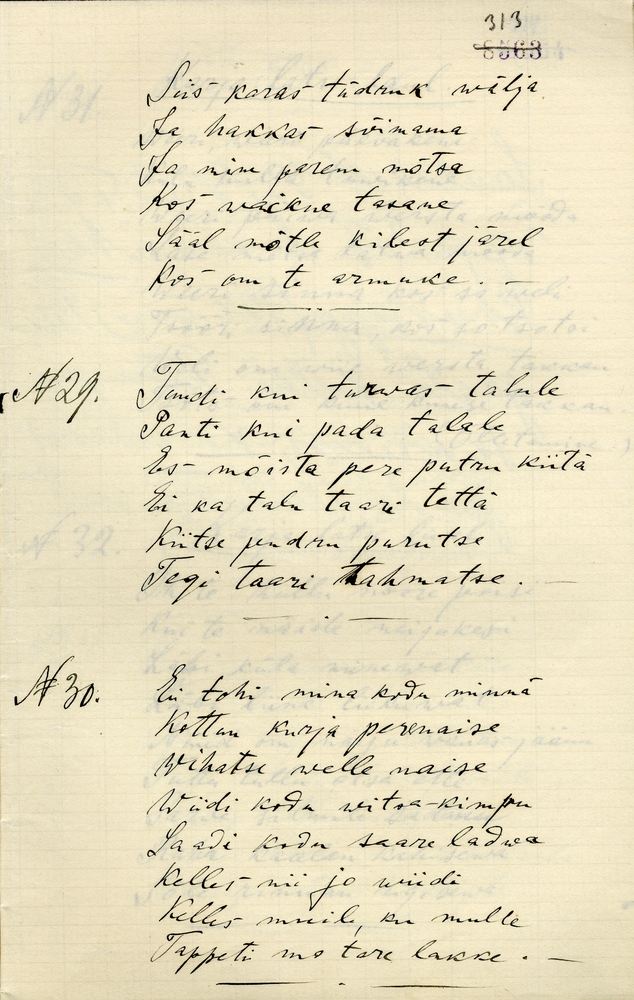 313
8563
Siis karas tüdruk wälja
Ja hakkas sõimama
Ja mine parem mõtsa
Kos waikne tasane
Sääl mõtle kibest järel
Kos om te armuke. —
N 29. Tundi kui turwas talule
Panti kui pada talale
Es mõista pere putru kiitä
Ei ka talu taari tettä
Kiitse pudru purutse
Tegi taari tahmatse. —
N 30. Ei tohi mina kodu minnä
Kottun kurja perenaise
Wihatse welle naise
Wiidi kodu witsa-kimpu
Saadi kodu saare ladwa
Kelles nii jo wiidi
Kelles muile, ku mulle
Tappeti mo tare lakke. —